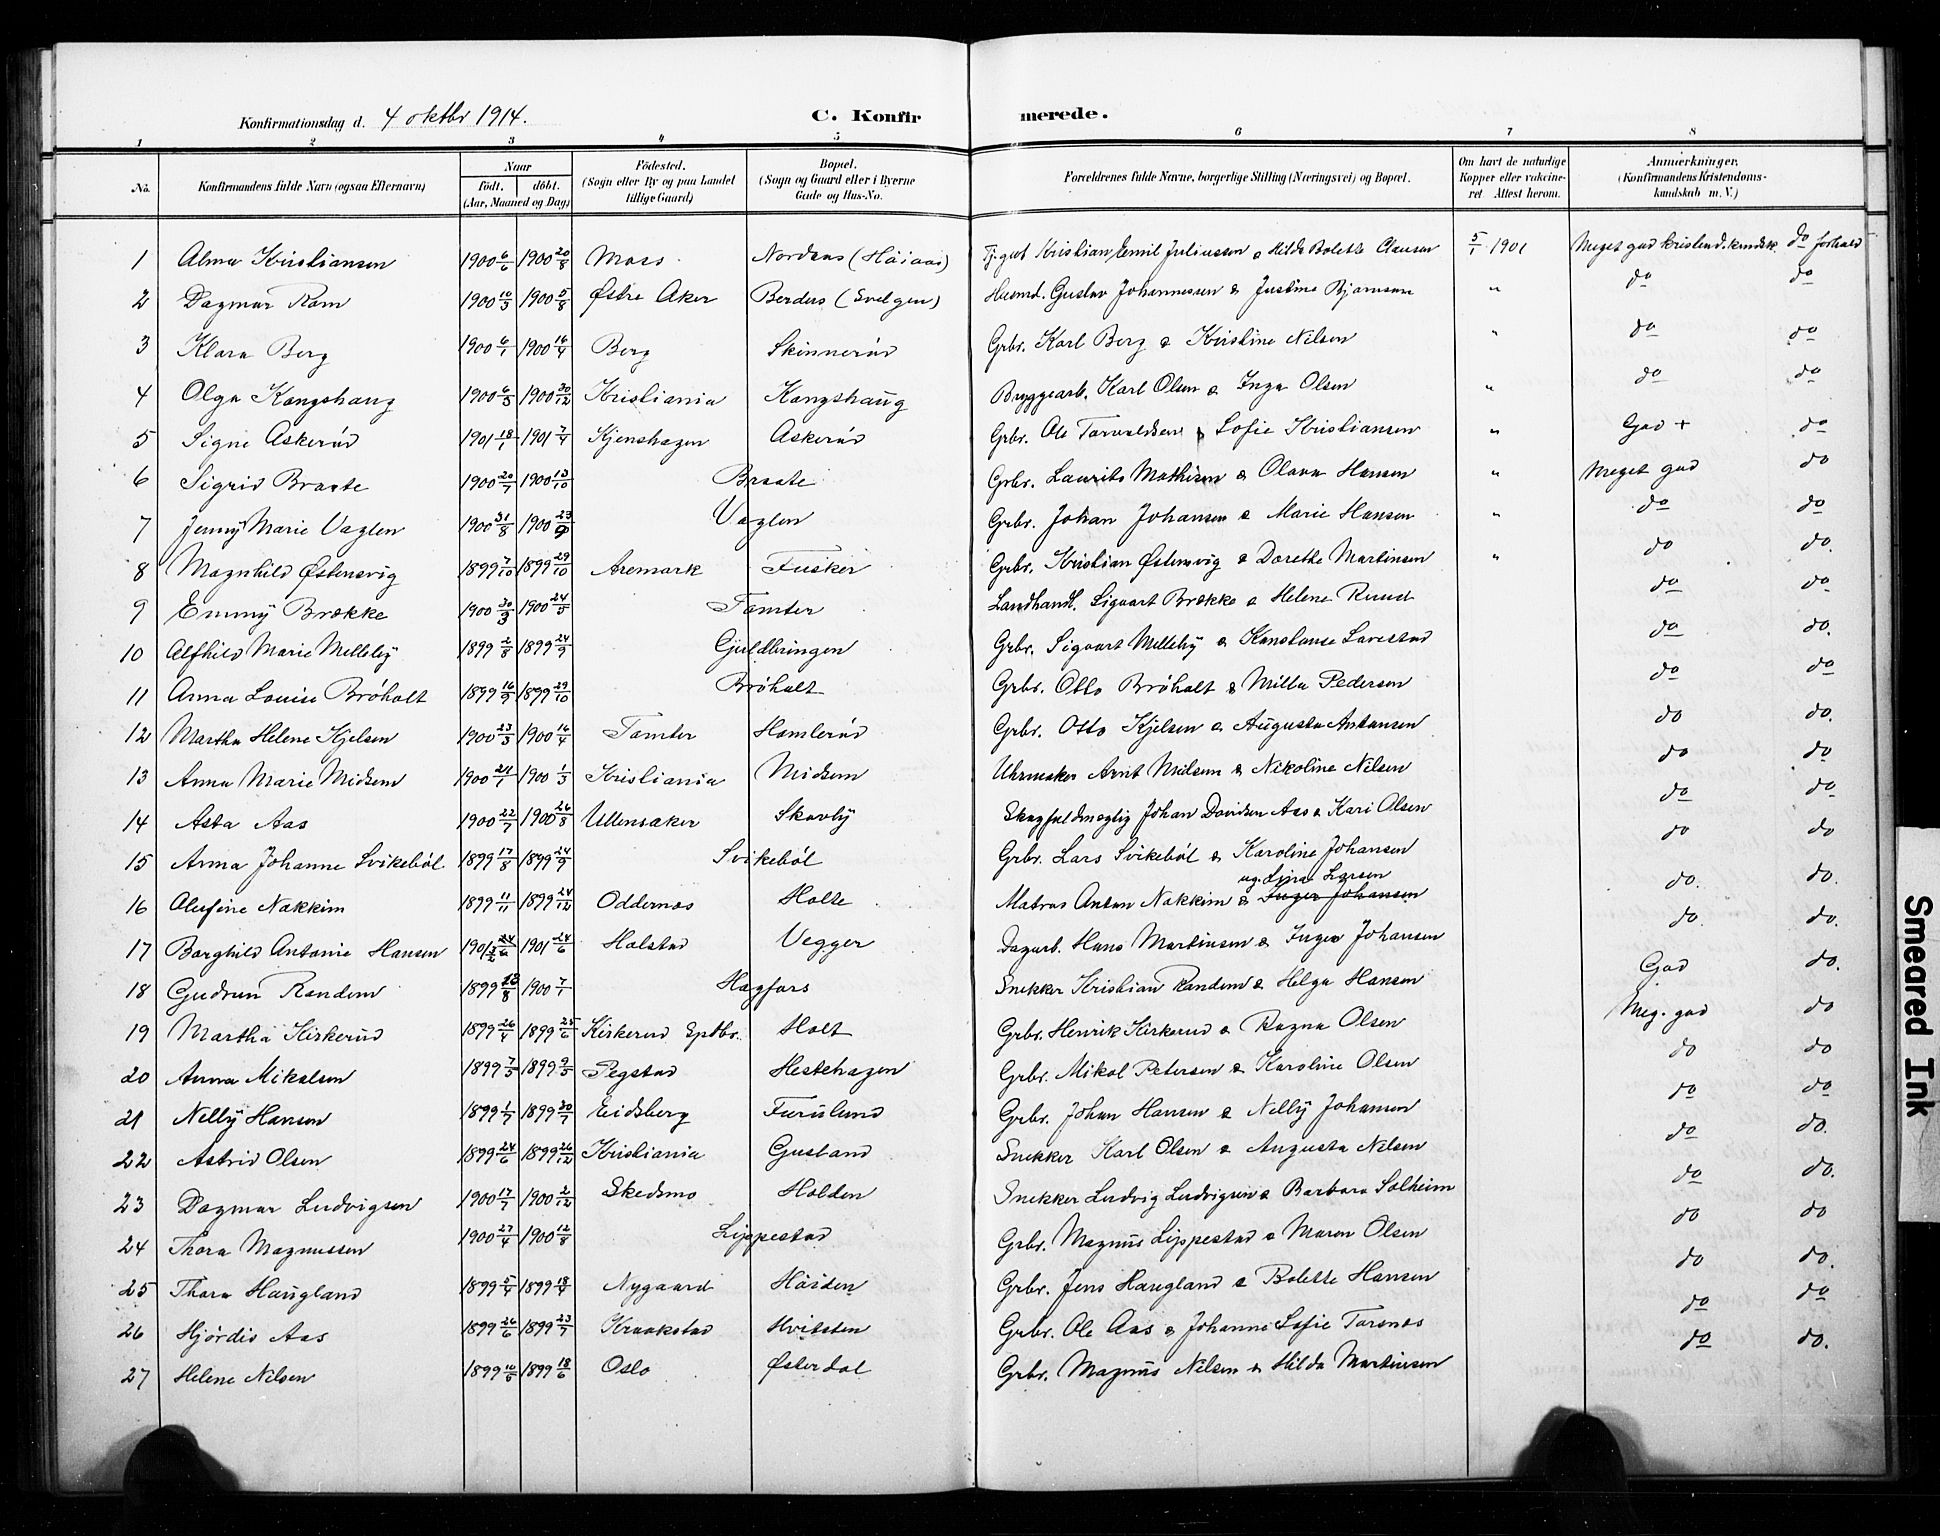 Konfirmationsdag d. 4 oktbr 1914. C. Konfir merede.
1 2 3 4 5 6 7 8
No. Konfirmandens fulde Navn (ogsaa Efternavn) Naar født. døbt. (Aar, Maaned og Dag) Fødested. (Sogn eller By og paa Landet tillige Gaard) Bopæl. (Sogn og Gaard eller i Byerne Gade og Hus-No. Forældrenes fulde Navne, borgerlige Stilling (Næringsvei) og Bopæl. Om havt de naturlige Kopper eller vaccineret Attest herom. Anmærkninger. (Konfirmandens Kristendomskundskab m. V.)
1 Alma Kristiansen 1900 6/6 1900 20/8 Moss Nordaas (Høiaas) Tj.gut Kristian Emil Juliussen & Hilda Bolette Clausen 5/1 1901 Meget god kristend. kundsk. do forhold
2 Dagmar Ram 1900 10/3 1900 5/8 Østre Aker Berders (Svelgen) Husmd. Gustav Johannessen & Justine Bjørnsen " do do
3 Klara Berg 1900 6/1 1900 16/4 Berg Skinnerud Grbr. Karl Berg & Kristine Nilsen " do do
4 Olga Kongshaug 1900 6/3 1900 30/12 Kristiania Kongshaug Bryggearb. Karl Olsen & Inga Olsen " do do
5 Signe Askerud 1901 18/1 1901 7/4 Kjenshagen Askerud Grbr. Ole Torvaldsen & Sofie Kristiansen " God + do
6 Sigrid Braate 1900 20/7 1900 13/10 Braate Grbr. Laurits Mathisen & Olava Hansen " Meget god do
7 Jenny Marie Vaglen 1900 31/8 1900 23/9 Vaglen Grbr. Johan Johansen & Marie Hansen " do do
8 Magnhild Østensvig 1899 7/10 1899 29/10 Aremark Fusker Grbr. Kristian Østensvig & Dorethe Martinsen " do do.
9 Emmy Brække 1900 30/3 1900 24/5 Tomter Landhandl. Sigvart Brække & Helene Ruud do do
10 Alfhild Marie Melleby 1899 2/8 1899 24/9 Gjuldbringen Grbr. Sigvart Melleby & Konstanse Larestad do do.
11 Anna Louise Brøholt 1899 16/9 1899 29/10 Brøholt Grbr. Otto Brøholt & Milla Pedersen do do
12 Martha Helene Kjelsen 1900 23/3 1900 16/4 Tomter Homlerud Grbr. Otto Kjelsen & Augusta Antonsen do do.
13 Anna Marie Midsem 1900 21/1 1900 1/3 Kristiania Midsem Uhrmaker Arnt Midsem & Nikoline Nilsen do do
14 Asta Aas 1900 22/7 1900 26/8 Ullensaker Skovby Skogfuldmægtig Johan Davidsen Aas & Kari Olsen do do
15 Anna Johanne Svikebøl 1899 17/8 1899 24/9 Svikebøl Grbr. Lars Svikebøl & Karoline Johansen do do
ug. Lina Larsen
16 Alufine Nakkim 1899 11/11 1899 24/12 Oddernes Holte Matros Anton Nakkim & Inger Johansen do. do.
17 Borghild Antonie Hansen 1901 1901 24/6 Holstad Vegger Dagarb. Hans Martinsen & Inger Johansen do. do.
18 Gudrun Randem 1899 23/8 1900 7/1 Hagfors Snekker Kristian Randem & Helga Hansen God do.
19 Martha Kirkerud 1899 26/4 1899 25/6 Kirkerud Sptbr. Holt Grbr. Henrik Kirkerud & Ragna Olsen Meg. god do
20 Anna Mikalsen 1899 7/3 1899 9/3 Segstad Hestehagen Grbr. Mikal Petersen & Karoline Olsen do do
21 Nelly Hansen 1899 1/7 1899 30/7 Eidsberg Furulund Grbr. Johan Hansen & Nelly Johansen do do
22 Astrid Olsen 1899 24/6 1899 26/12 Kristiania Gusland Snekker Karl Olsen & Augusta Nilsen do do.
23 Dagmar Ludvigsen 1900 17/7 1900 2/12 Skedsmo Holden Snekker Ludvig Ludvigsen & Barbara Solheim do do.
24 Thora Magnussen 1900 27/4 1900 12/8 Lippestad Grbr. Magnus Lippestad & Maren Olsen do do
25 Thora Haugland 1899 5/4 1899 18/4 Nygaard Høiden Grbr. Jens Haugland & Bolette Hansen do do.
26 Hjørdis Aas 1899 26/6 1899 23/7 Kraakstad Hvitsten Grbr. Ole Aas & Johanne Sofie Torsnes do do
27 Helene Nilsen 1899 1899 18/6 Oslo Østerdal Grbr. Magnus Nilsen & Hilda Martinsen do do.
Smeared Ink